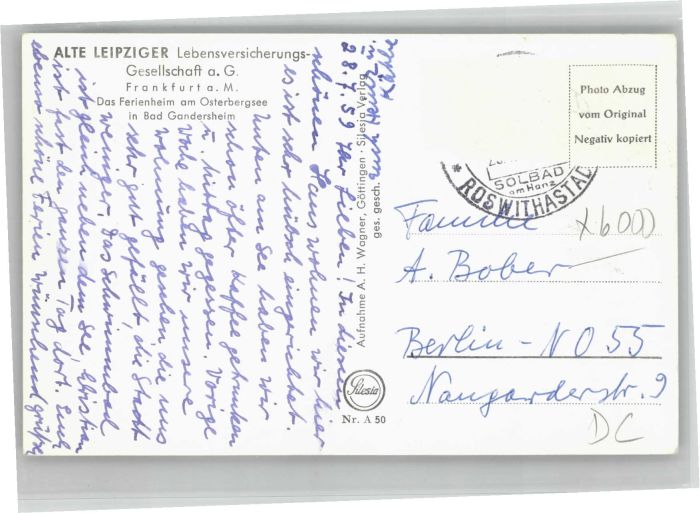 ALTE LEIPZIGER Lebensversicherungs-
Gesellschaft a. G.
Frankfurt a. M.
Das Ferienheim am Osterbergsee
in Bad Gandersheim
28.7.59 Ihr Lieben! In diesem
schönen Haus wohnen wir hier
es ist sehr hübsch eingerichtet.
Unten am See haben wir
schon öfter Kaffee getrunken
u. Mittag gegessen. Vorige
Woche haben wir unsere
Wohnung gesehen die uns
sehr gut gefällt, die Stadt
weniger. Das Schwimmbad
ist gleich neben dem See, Christian
ist fast den ganzen Tag dort. Euch
ebenso schöne Ferien wünschend grüßen
Heinz u.
Käthe
Aufnahme A. H. Wagner, Göttingen · Silesia Verlag
ges. gesch.
Silesia
Nr. A 50
Photo Abzug
vom Original
Negativ kopiert
SOLBAD
am Harz
* ROSWITHASTADT
Familie
A. Bober
Berlin - NO 55
Naugarderstr. 9
X6000
DC